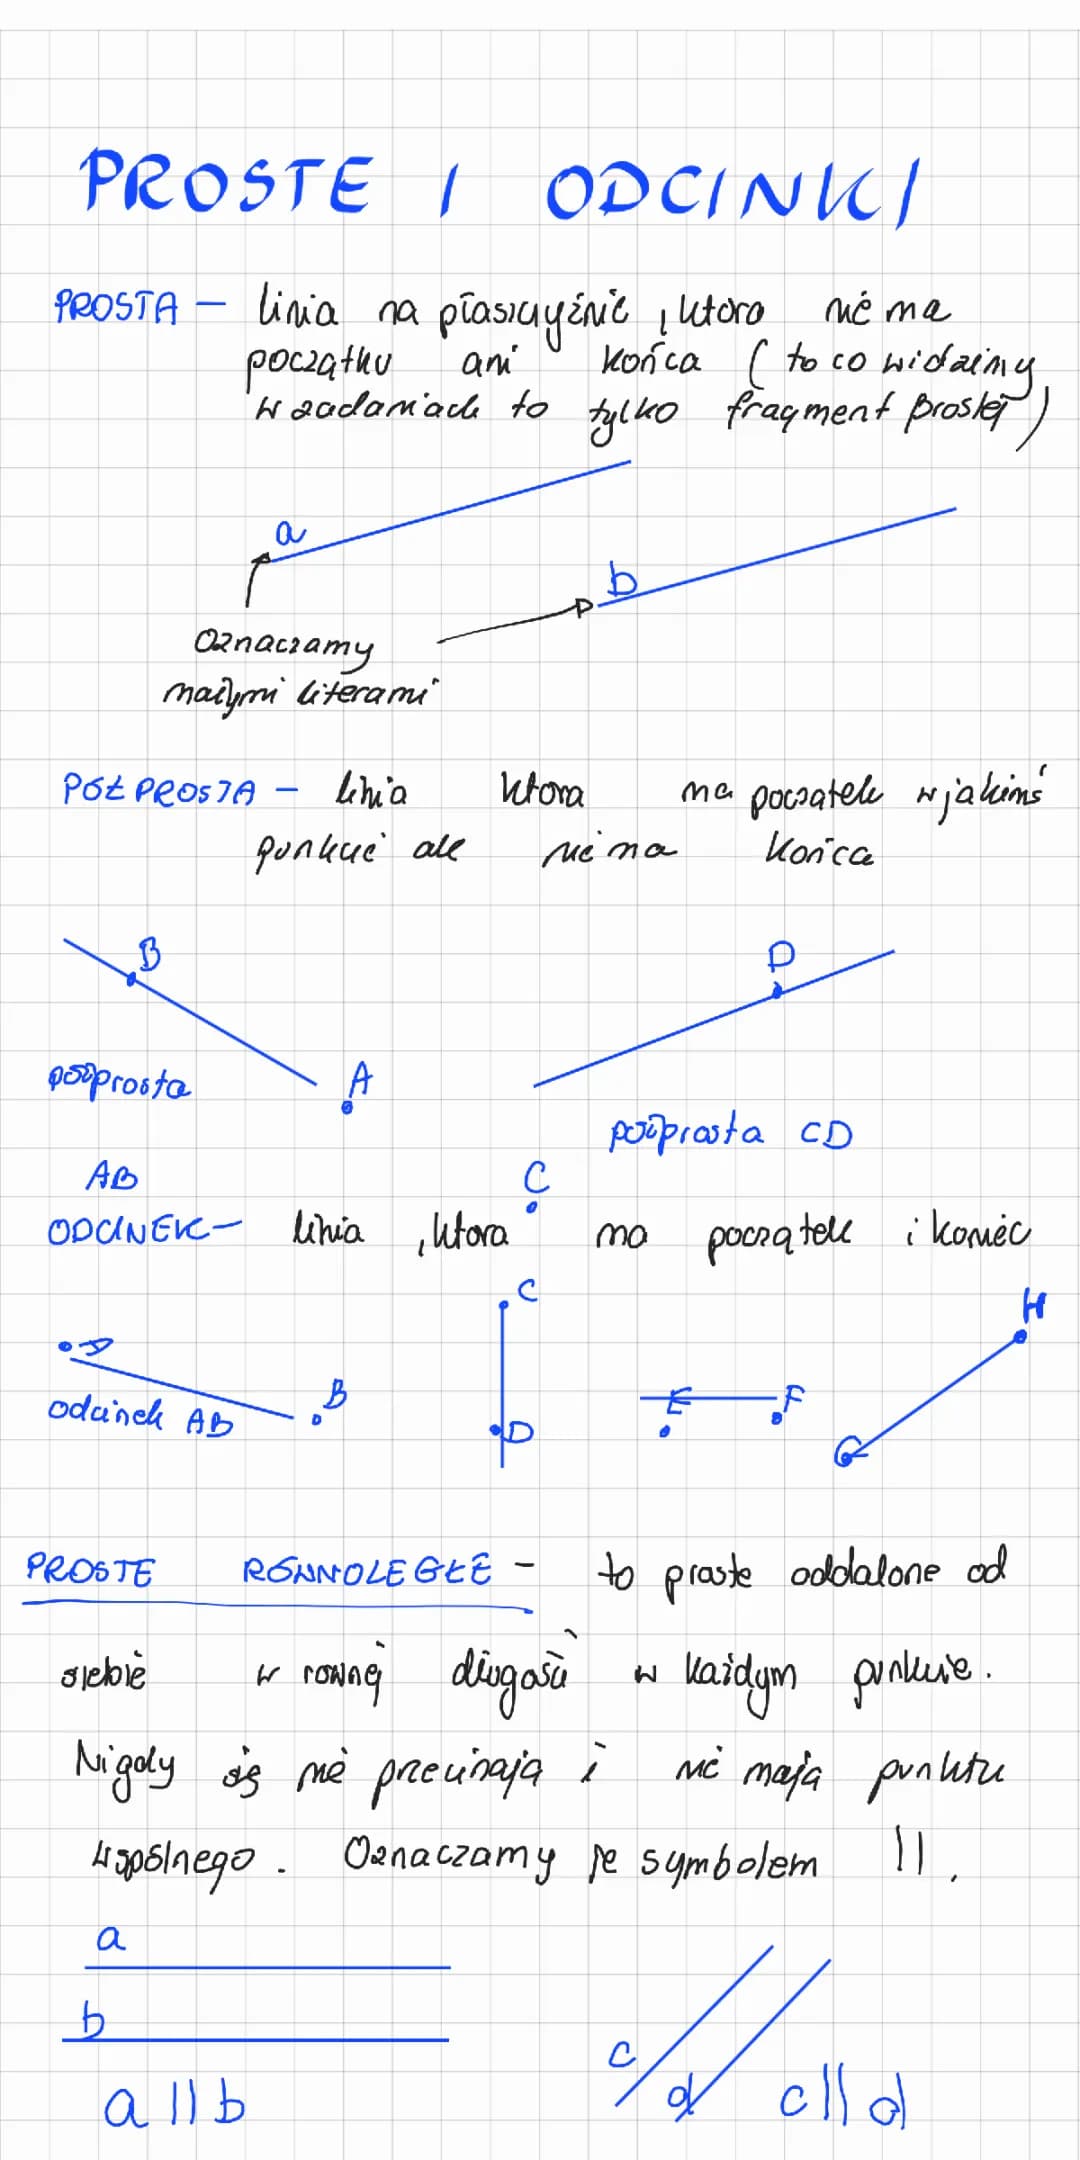 PROSTE I ODCINKI
PROSTA - linia na płaszczyźnie, ktora nie ma
początku ani końca ( to co widzimy
w zadaniach to tylko fragment prostej )
a
b
Oznaczamy
małymi literami
PÓŁPROSTA - linia ktora ma poczatek w jakimś
punkcie ale nie ma końca
B
D
A
półprosta
półprosta CD
AB
C
ODCINEK - linia , ktora ma początek i koniec
C
H
A
B
E
F
odcinek AB
D
G
PROSTE RÓWNOLEGŁE - to proste oddalone od
siebie w rownej długości w każdym punkcie.
Nigdy się nie przecinają i nie mają punktu
wspólnego. Oznaczamy je symbolem || .
a
b
c
d
a || b
c || d